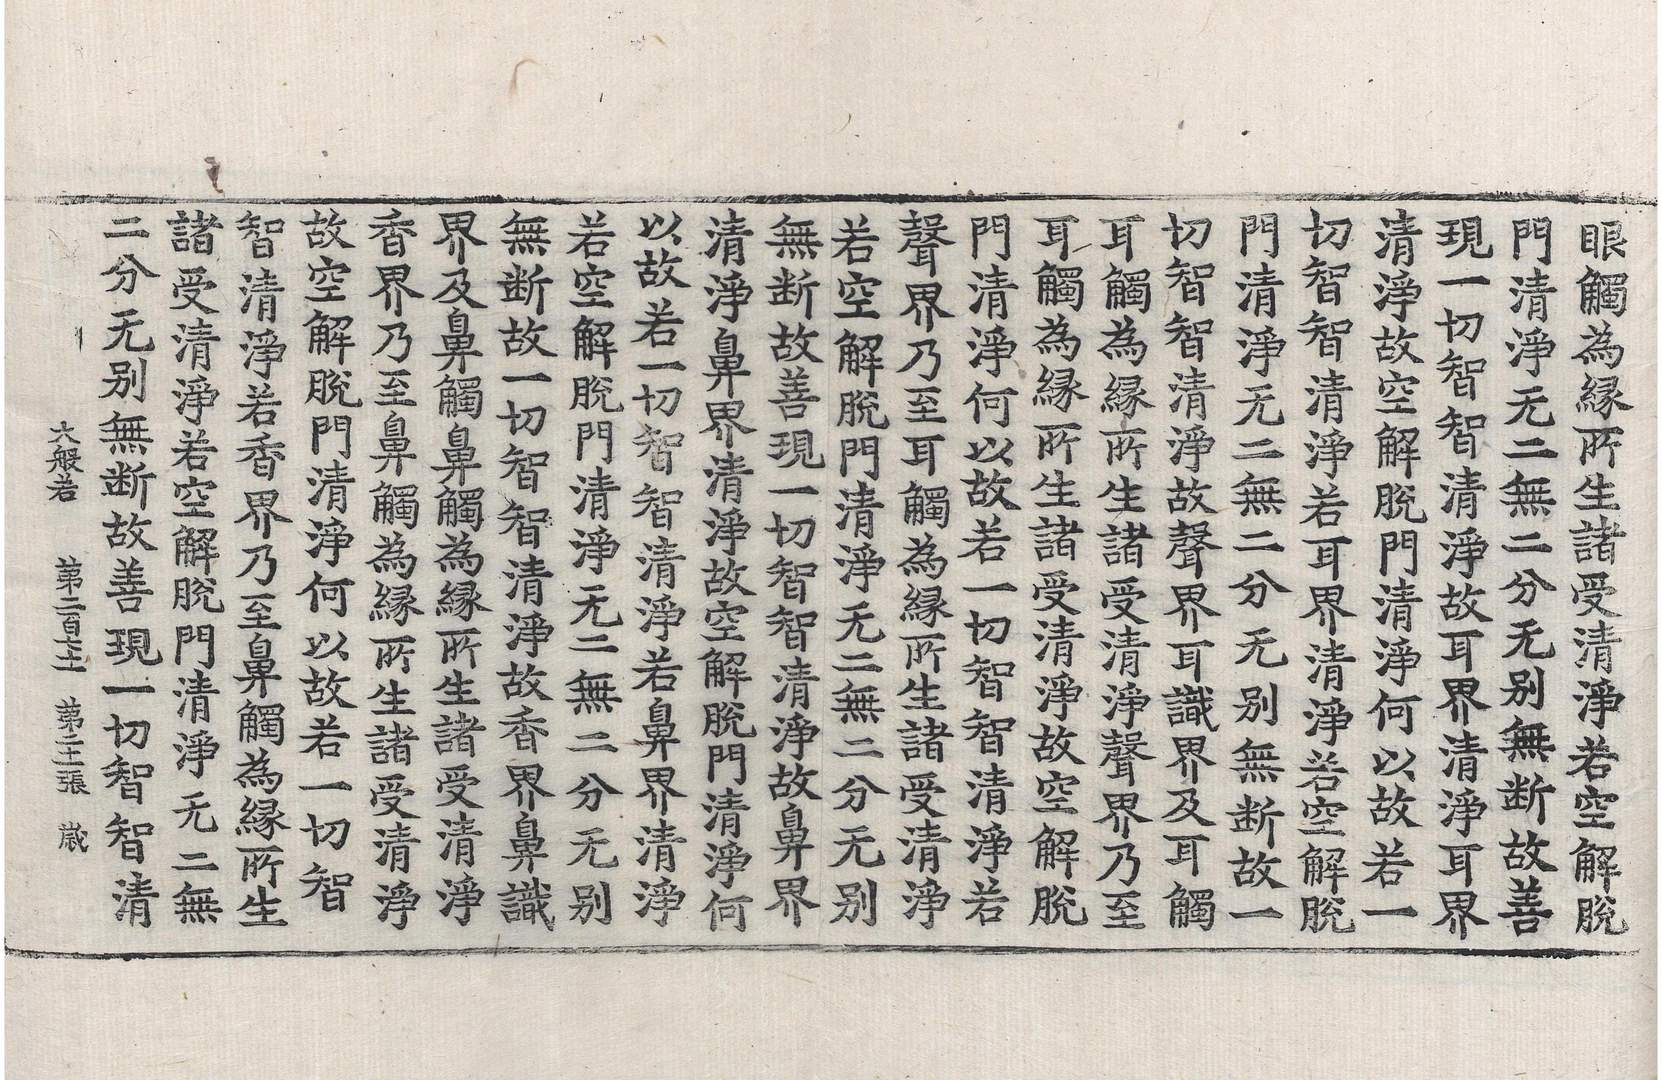 眼觸為緣所生諸受清淨若空解脫
門清淨无二無二分无別無断故善
現一切智智清淨故耳界清淨耳界
清淨故空解脫門清淨何以故若一
切智智清淨若耳界清淨若空解脫
門清淨无二無二分无別無断故一
切智智清淨故聲界耳識界及耳觸
耳觸為緣所生諸受清淨聲界乃至
耳觸為緣所生諸受清淨故空解脫
門清淨何以故若一切智智清淨若
聲界乃至耳觸為緣所生諸受清淨
若空解脫門清淨无二無二分无別
無断故善現一切智智清淨故鼻界
清淨鼻界清淨故空解脫門清淨何
以故若一切智智清淨若鼻界清淨
若空解脫門清淨无二無二分无別
無断故一切智智清淨故香界鼻識
界及鼻觸鼻觸為緣所生諸受清淨
香界乃至鼻觸為緣所生諸受清淨
故空解脫門清淨何以故若一切智
智清淨若香界乃至鼻觸為緣所生
諸受清淨若空解脫門清淨无二無
二分无別無断故善現一切智智清
大般若 第二百六十一 第二十張 嵗